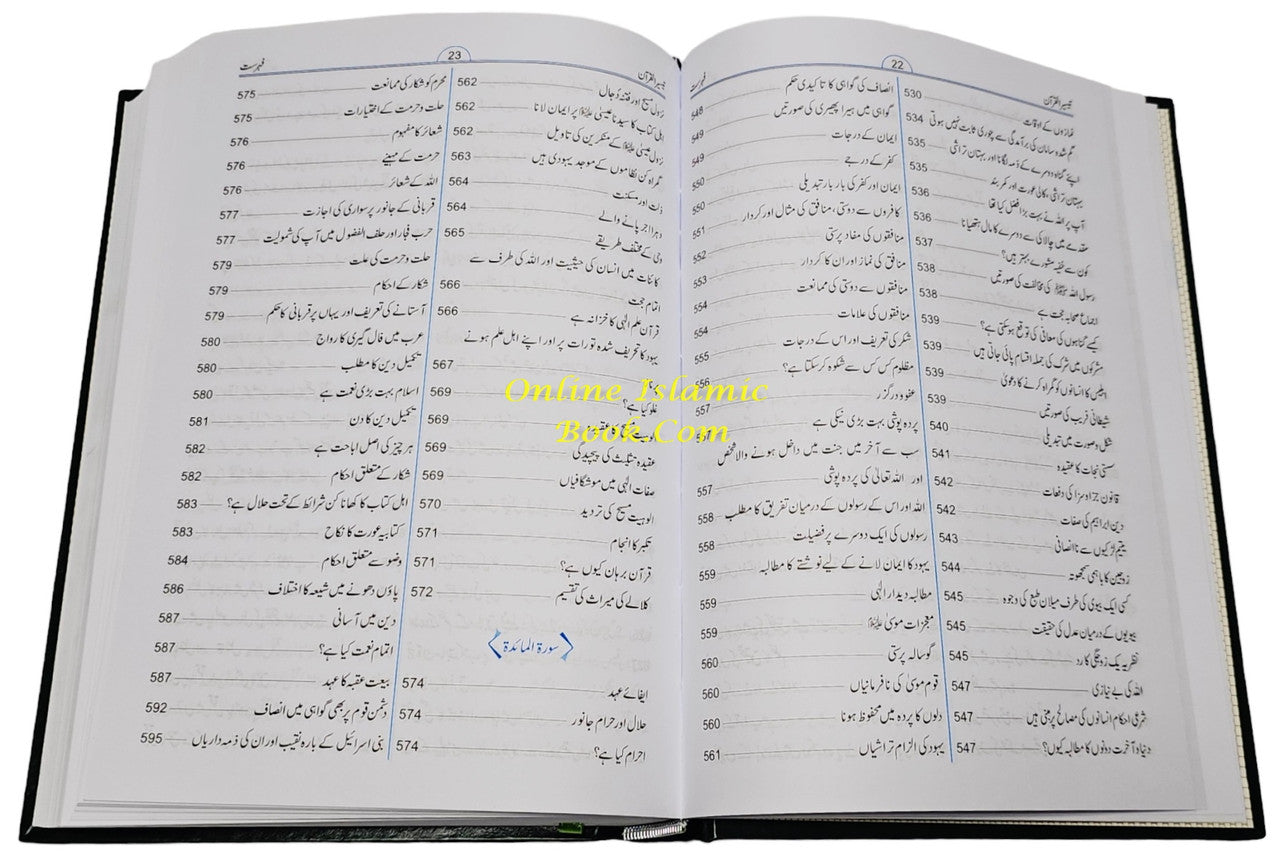 تیسیر القرآن
22
فہرست
نمازوں کے اوقات 530
گم شدہ سامان کی برآمدگی سے چوری ثابت نہیں ہوتی 534
اپنے گناہ دوسرے کے ذمہ لگانا اور بہتان تراشی 535
بہتان تراشی، کالی عورت اور کمر بند 535
آپ پر اللہ نے بہت بڑا فضل کیا تھا 536
مقدمے میں چالاکی سے دوسرے کا مال ہتھیانا 536
کون سے خفیہ مشورے بہتر ہیں؟ 537
رسول اللہ ﷺ کی مخالفت کی صورتیں 538
اجماع صحابہ حجت ہے 538
کیسے گناہوں کی معافی کی توقع ہو سکتی ہے؟ 539
مشرکوں میں شرک کی جملہ اقسام پائی جاتی ہیں 539
ابلیس کا انسانوں کو گمراہ کرنے کا دعویٰ 539
شیطانی فریب کی صورتیں 539
شکل و صورت میں تبدیلی 540
سستی نجات کا عقیدہ 541
قانون جزا و سزا کی دفعات 542
دین ابراہیم کی صفات 542
یتیم لڑکیوں سے ناانصافی 543
زوجین کا باہمی سمجھوتہ 544
کسی ایک بیوی کی طرف میلان طبع کی وجوہ 545
بیویوں کے درمیان عدل کی حقیقت 545
نظریہ یک زوجگی کا رد 545
اللہ کی بے نیازی 547
شرعی احکام انسانوں کی مصالح پر مبنی ہیں 547
دنیا و آخرت دونوں کا مطالبہ کیوں؟ 547
انصاف کی گواہی کا تاکیدی حکم 548
گواہی میں ہیرا پھیری کی صورتیں 549
ایمان کے درجات 549
کفر کے درجے 550
ایمان اور کفر کی بار بار تبدیلی 550
کافروں سے دوستی، منافق کی مثال اور کردار 551
منافقوں کی مفاد پرستی 552
منافق کی نماز اور ان کا کردار 553
منافقوں سے دوستی کی ممانعت 554
منافقوں کی علامات 554
شکر کی تعریف اور اس کے درجات 555
مظلوم کس کس سے شکوہ کر سکتا ہے؟ 556
عفو و درگزر 557
پردہ پوشی بہت بڑی نیکی ہے
سب سے آخر میں جنت میں داخل ہونے والا شخص
اور اللہ تعالیٰ کی پردہ پوشی 557
اللہ اور اس کے رسولوں کے درمیان تفریق کا مطلب 558
رسولوں کی ایک دوسرے پر فضیلت 558
یہود کا ایمان لانے کے لیے نوشتے کا مطالبہ 559
مطالبہ دیدار الٰہی 559
معجزات موسیٰ علیہ السلام 559
گوسالہ پرستی 560
قوم موسیٰ کی نافرمانیاں 560
دلوں کا پردہ میں محفوظ ہونا 560
یہود کی الزام تراشیاں 561
تیسیر القرآن
23
فہرست
نزول مسیح اور فتنۂ دجال 562
اہل کتاب کا سیدنا عیسیٰ علیہ السلام پر ایمان لانا 562
نزول عیسیٰ علیہ السلام کے منکرین کی تاویل 562
گمراہ کن نظاموں کے موجد یہودی ہیں 563
ذلت اور مسکنت 564
دہرا اجر پانے والے 564
وحی کے مختلف طریقے 565
کائنات میں انسان کی حیثیت اور اللہ کی طرف سے
اتمام حجت 566
قرآن علم الٰہی کا خزانہ ہے 566
یہود کا تحریف شدہ تورات پر اور اپنے اہل علم ہونے
567
غلو کیا ہے؟ 569
569
عقیدہ تثلیث کی پیچیدگی 569
صفات الٰہی میں موشگافیاں 569
الوہیت مسیح کی تردید 570
تکبر کا انجام 571
قرآن برہان کیوں ہے؟ 571
کلالے کی میراث کی تقسیم 572
سورۃ المائدۃ
ایفائے عہد 574
حلال اور حرام جانور 574
احرام کیا ہے؟ 574
محرم کو شکار کی ممانعت 575
حلت و حرمت کے اختیارات 575
شعائر کا مفہوم 576
حرمت کے مہینے 576
اللہ کے شعائر 576
قربانی کے جانور پر سواری کی اجازت 577
حرب فجار اور حلف الفضول میں آپ کی شمولیت 577
حلت و حرمت کی علت 579
شکار کے احکام 579
آستانے کی تعریف اور یہاں پر قربانی کا حکم 579
عرب میں فال گیری کا رواج 580
تکمیل دین کا مطلب 580
اسلام بہت بڑی نعمت ہے 580
تکمیل دین کا دن 581
ہر چیز کی اصل اباحت ہے 582
شکار کے متعلق احکام 582
اہل کتاب کا کھانا کن شرائط کے تحت حلال ہے؟ 583
کتابیہ عورت کا نکاح 583
وضو سے متعلق احکام 584
پاؤں دھونے میں شیعہ کا اختلاف 586
دین میں آسانی 587
اتمام نعمت کیا ہے؟ 587
بیعت عقبہ کا عہد 587
دشمن قوم پر بھی گواہی میں انصاف 592
بنی اسرائیل کے بارہ نقیب اور ان کی ذمہ داریاں 595
Online Islamic
Book.Com